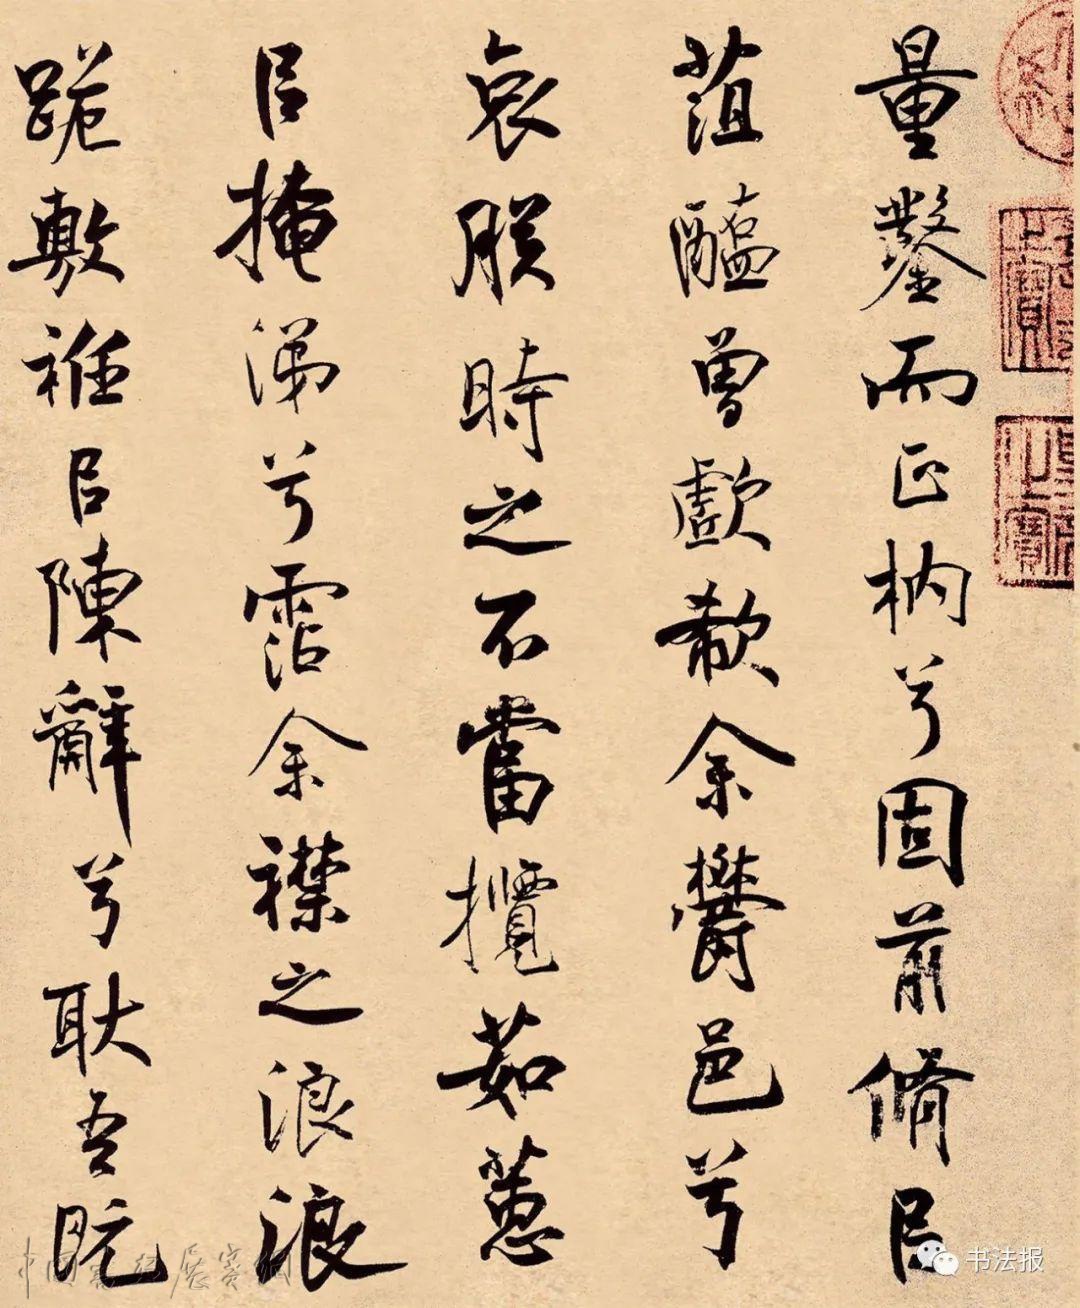 量鑿而正枘兮固前脩㠯
菹醢曾歔欷余鬱邑兮
哀朕時之不當攬茹蕙
㠯掩涕兮霑余襟之浪浪
跪敷衽㠯陳辭兮耿吾既
中国书法展赛网
书法报